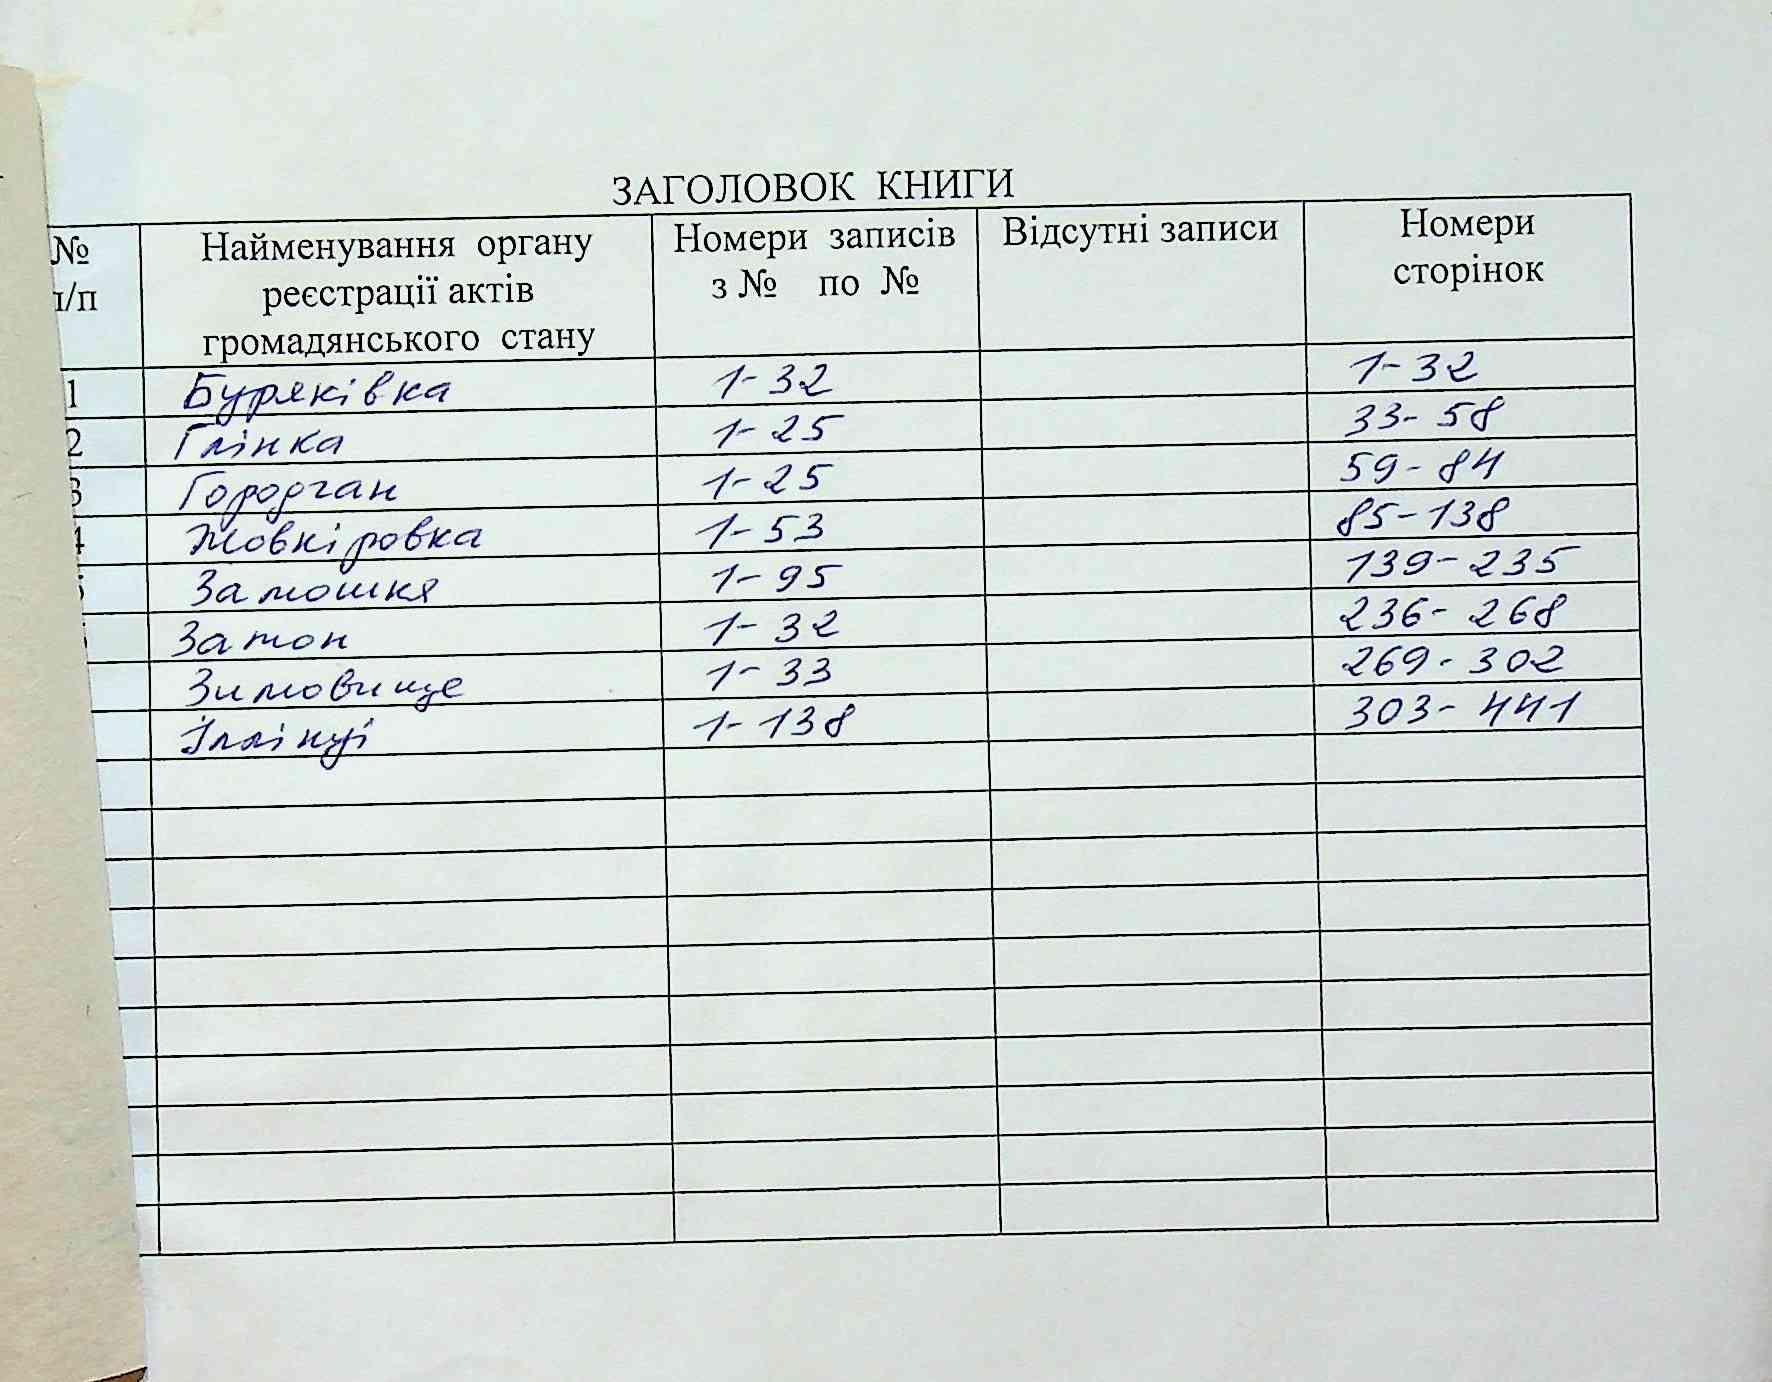 ЗАГОЛОВОК КНИГИ
№ п/п Найменування органу реєстрації актів громадянського стану Номери записів з № по № Відсутні записи Номери сторінок
1 Буряківка 1-32 1-32
2 Глінка 1-25 33-58
3 Городчан 1-25 59-84
4 Жовкіровка 1-53 85-138
5 Замошня 1-95 139-235
Затон 1-32 236-268
Зимовище 1-33 269-302
Іллінці 1-138 303-441